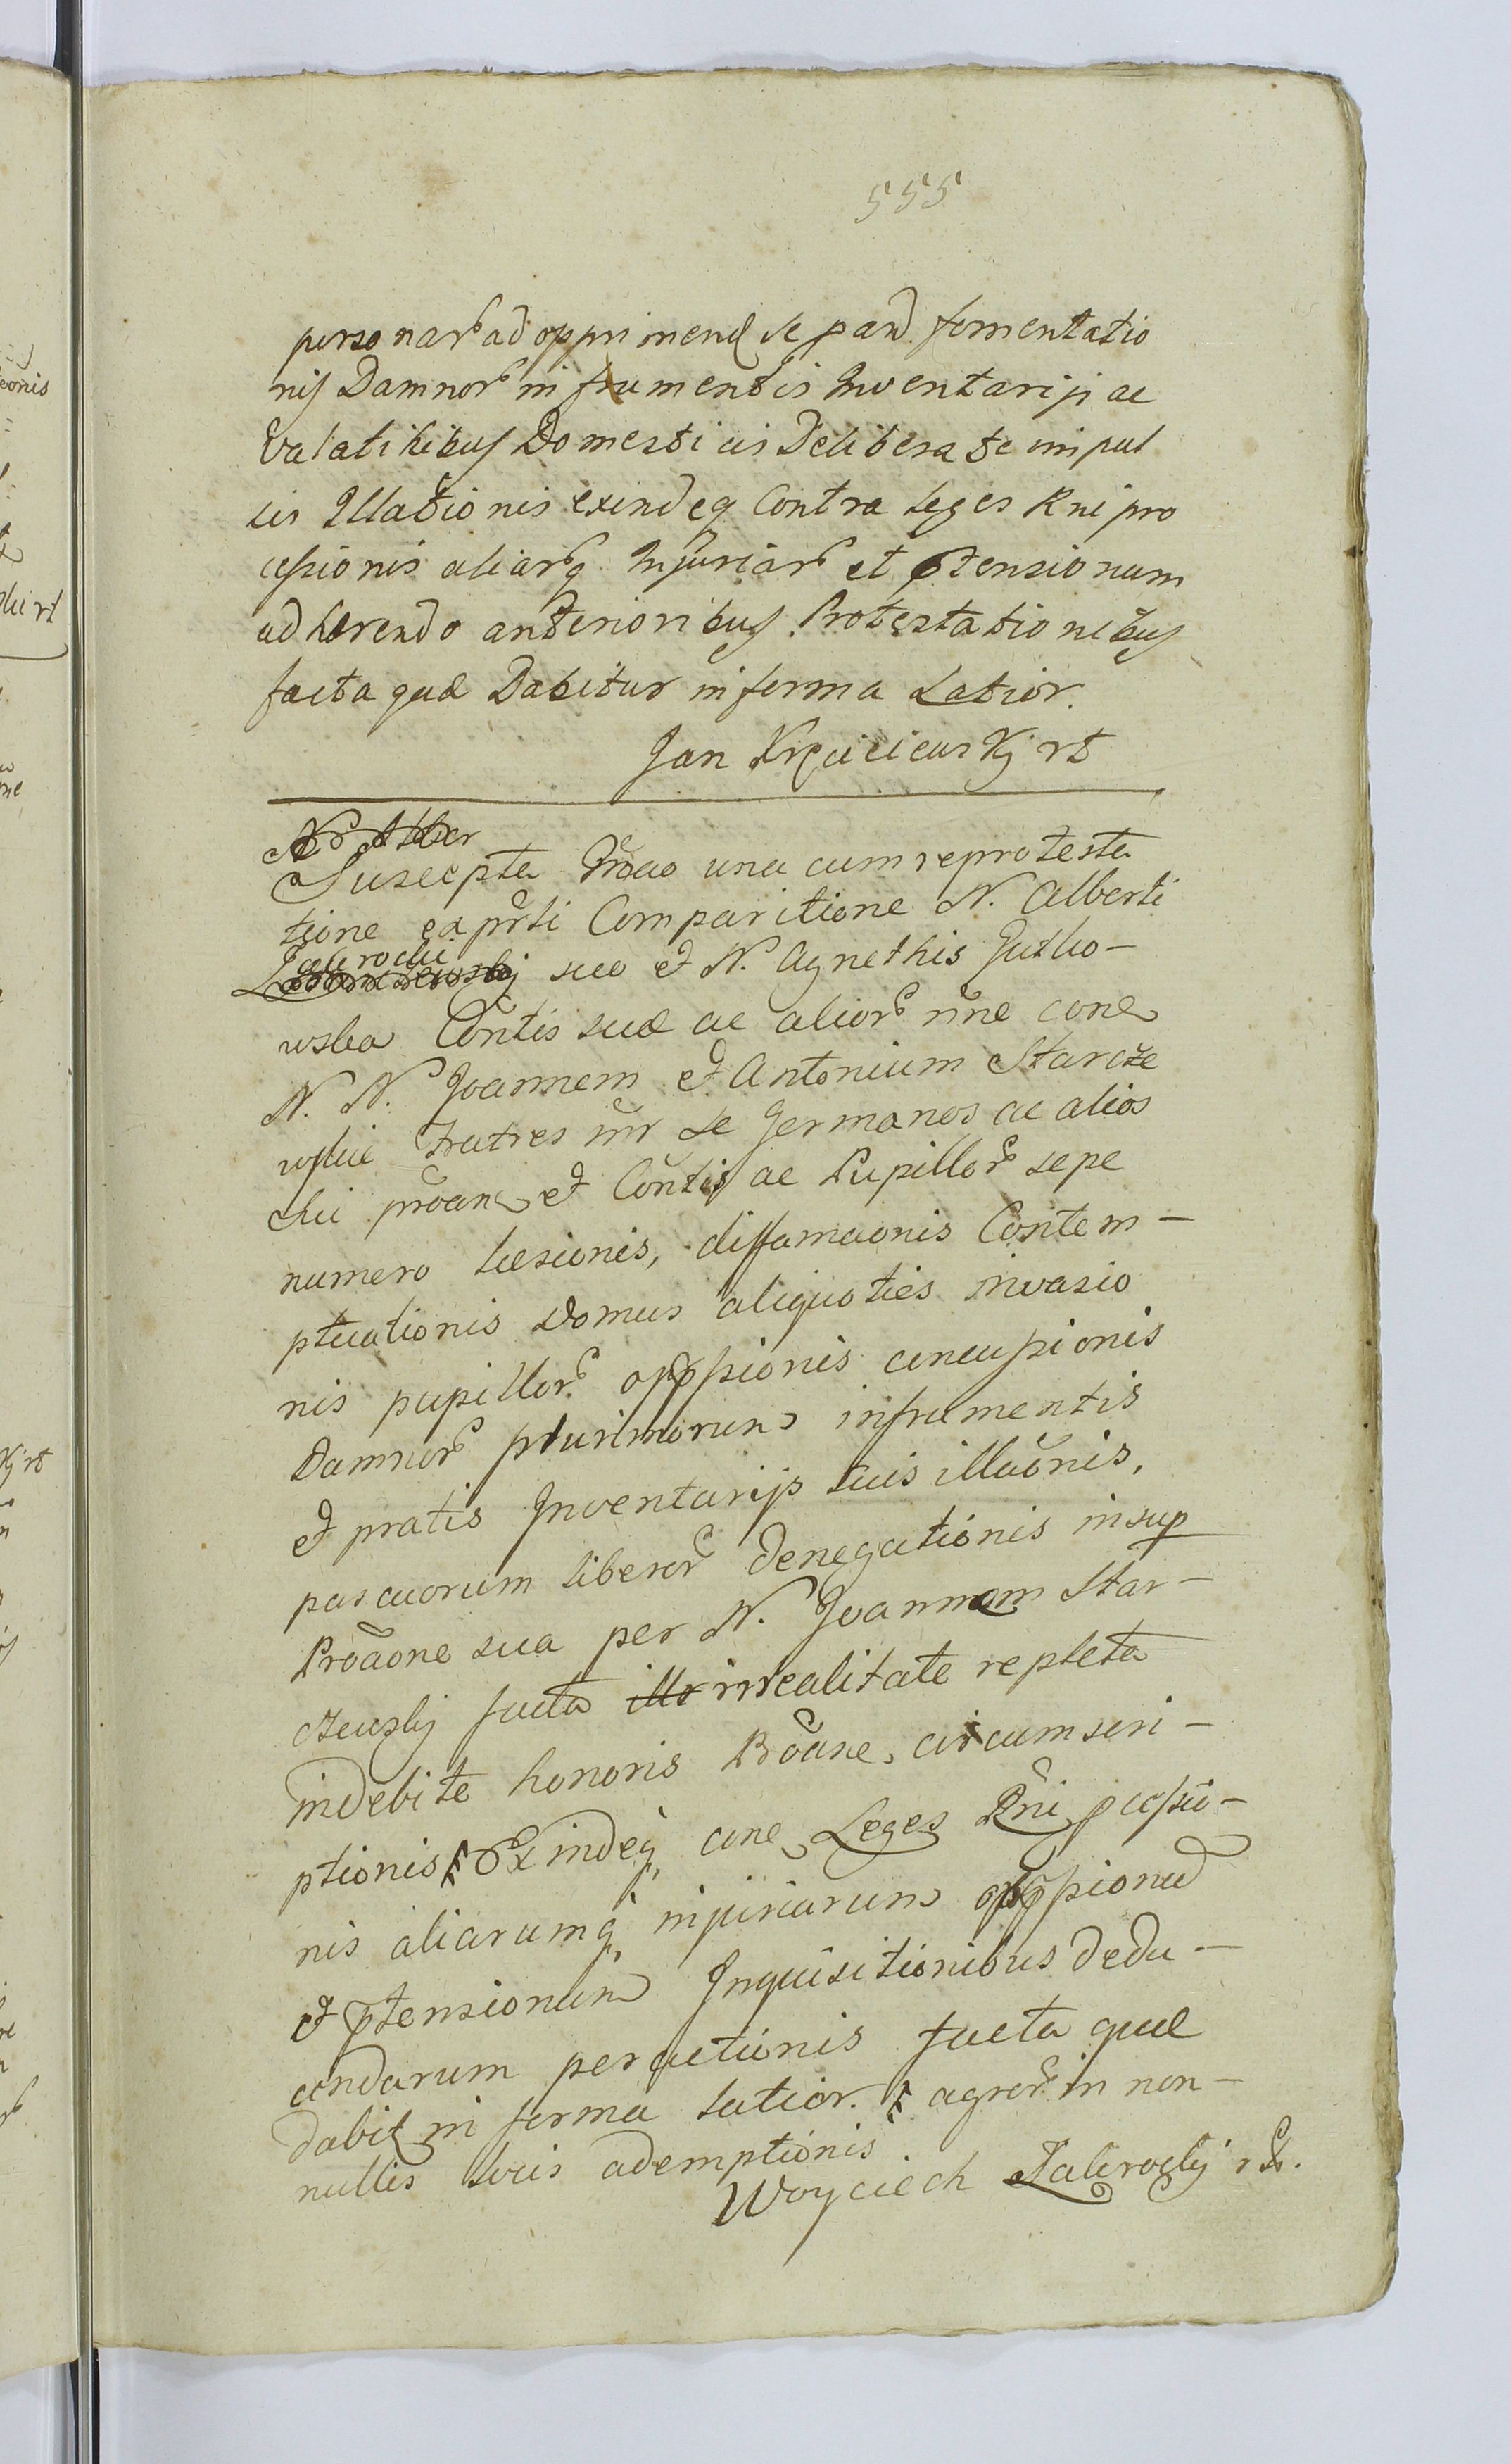 555
personar ad opprimend se pard fomentatio
nis Damnor in frumentis Inventarijs ac
Volatilibus Domesticis Deliberate impul
sis Illationis exindeq Contra leges Rni pro
cessionis aliarq Injuriar et ptensionum
adhærendo anterioribus Protestationibus
facta quæ Dabitur in forma Latior.
Jan rt
Suscepta una cum reprotesta
tione ex prsti Comparitione N. Alberti
Zakrocki suo et N. Agnethis Gutko-
wska Contis suæ ac alior nne cone
N. N. Joannem et Antonium Starcze
wskie Fratres inr se Germanos ac alios
chi proane et Contis ac Pupillor sepe
numero læsionis, diffamaonis Contem-
ptuationis Domus aliquoties invasio
nis pupillor oppssionis concussionis
Damnor plurimorum in frumentis
et pratis Inventarijs suis illaonis,
pascuorum liberor denegationis insup
Proaone sua per N. Joannem Star-
czewskj facta illr irrealitate repleta
indebite honoris Proane, circumscri-
ptionis Exindeq cone Leges Rni pcessio-
nis aliarumq injuriarum oppssionu
et ptensionum Inquisitionibus dedu-
cendarum peractionis facta quæ
dabit in forma latior. agror in non-
nullis locis ademptionis
Woyciech Zakrockj rt.